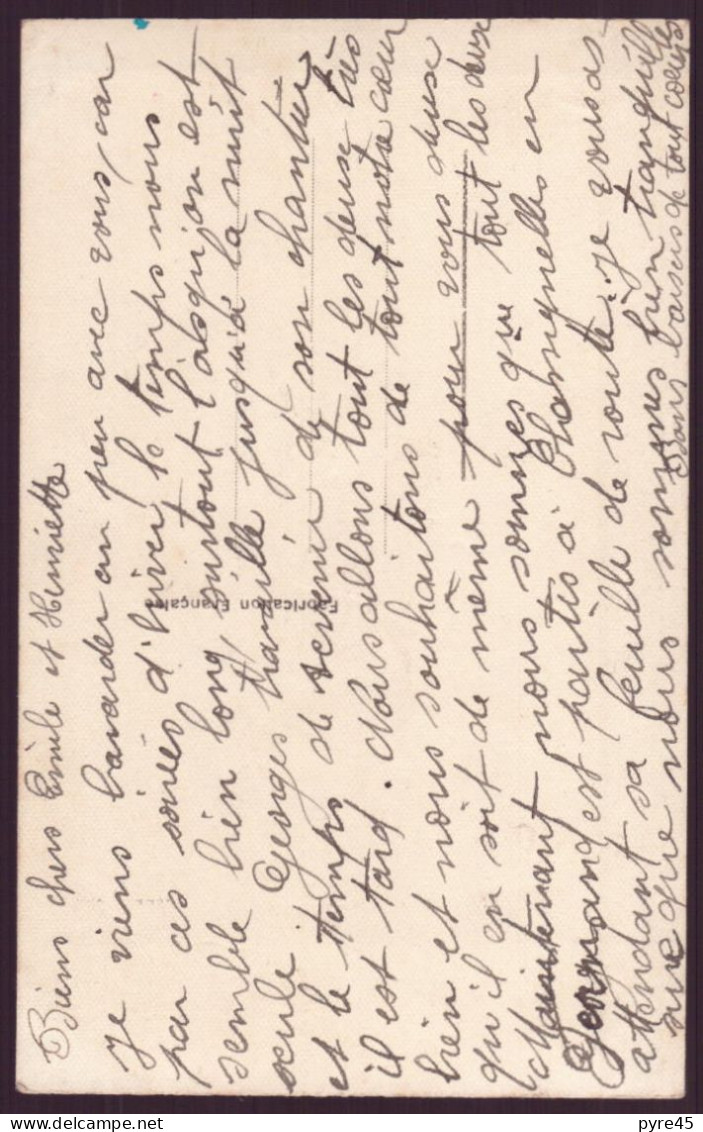 Biens chers Emile et Henriette
Je viens bavarder un peu avec vous, car
par ces soirées d'hiver le temps nous
semble bien long surtout lasqu'on est
seule Georges travaille jusqu'à la nuit
et le temps de revenir de son chantier
il est tard. Nous allons tout les deux très
bien et nous souhaitons de tout notre cœur
qu'il en soit de même pour vous deux
Maintenant nous sommes que tout les deux
Germand est partis à en
attendant sa feuille de route. Je vous as-
sure que nous sommes bien tranquille
Bons baisers de tout cœurs
Fabrication Française
pyre45